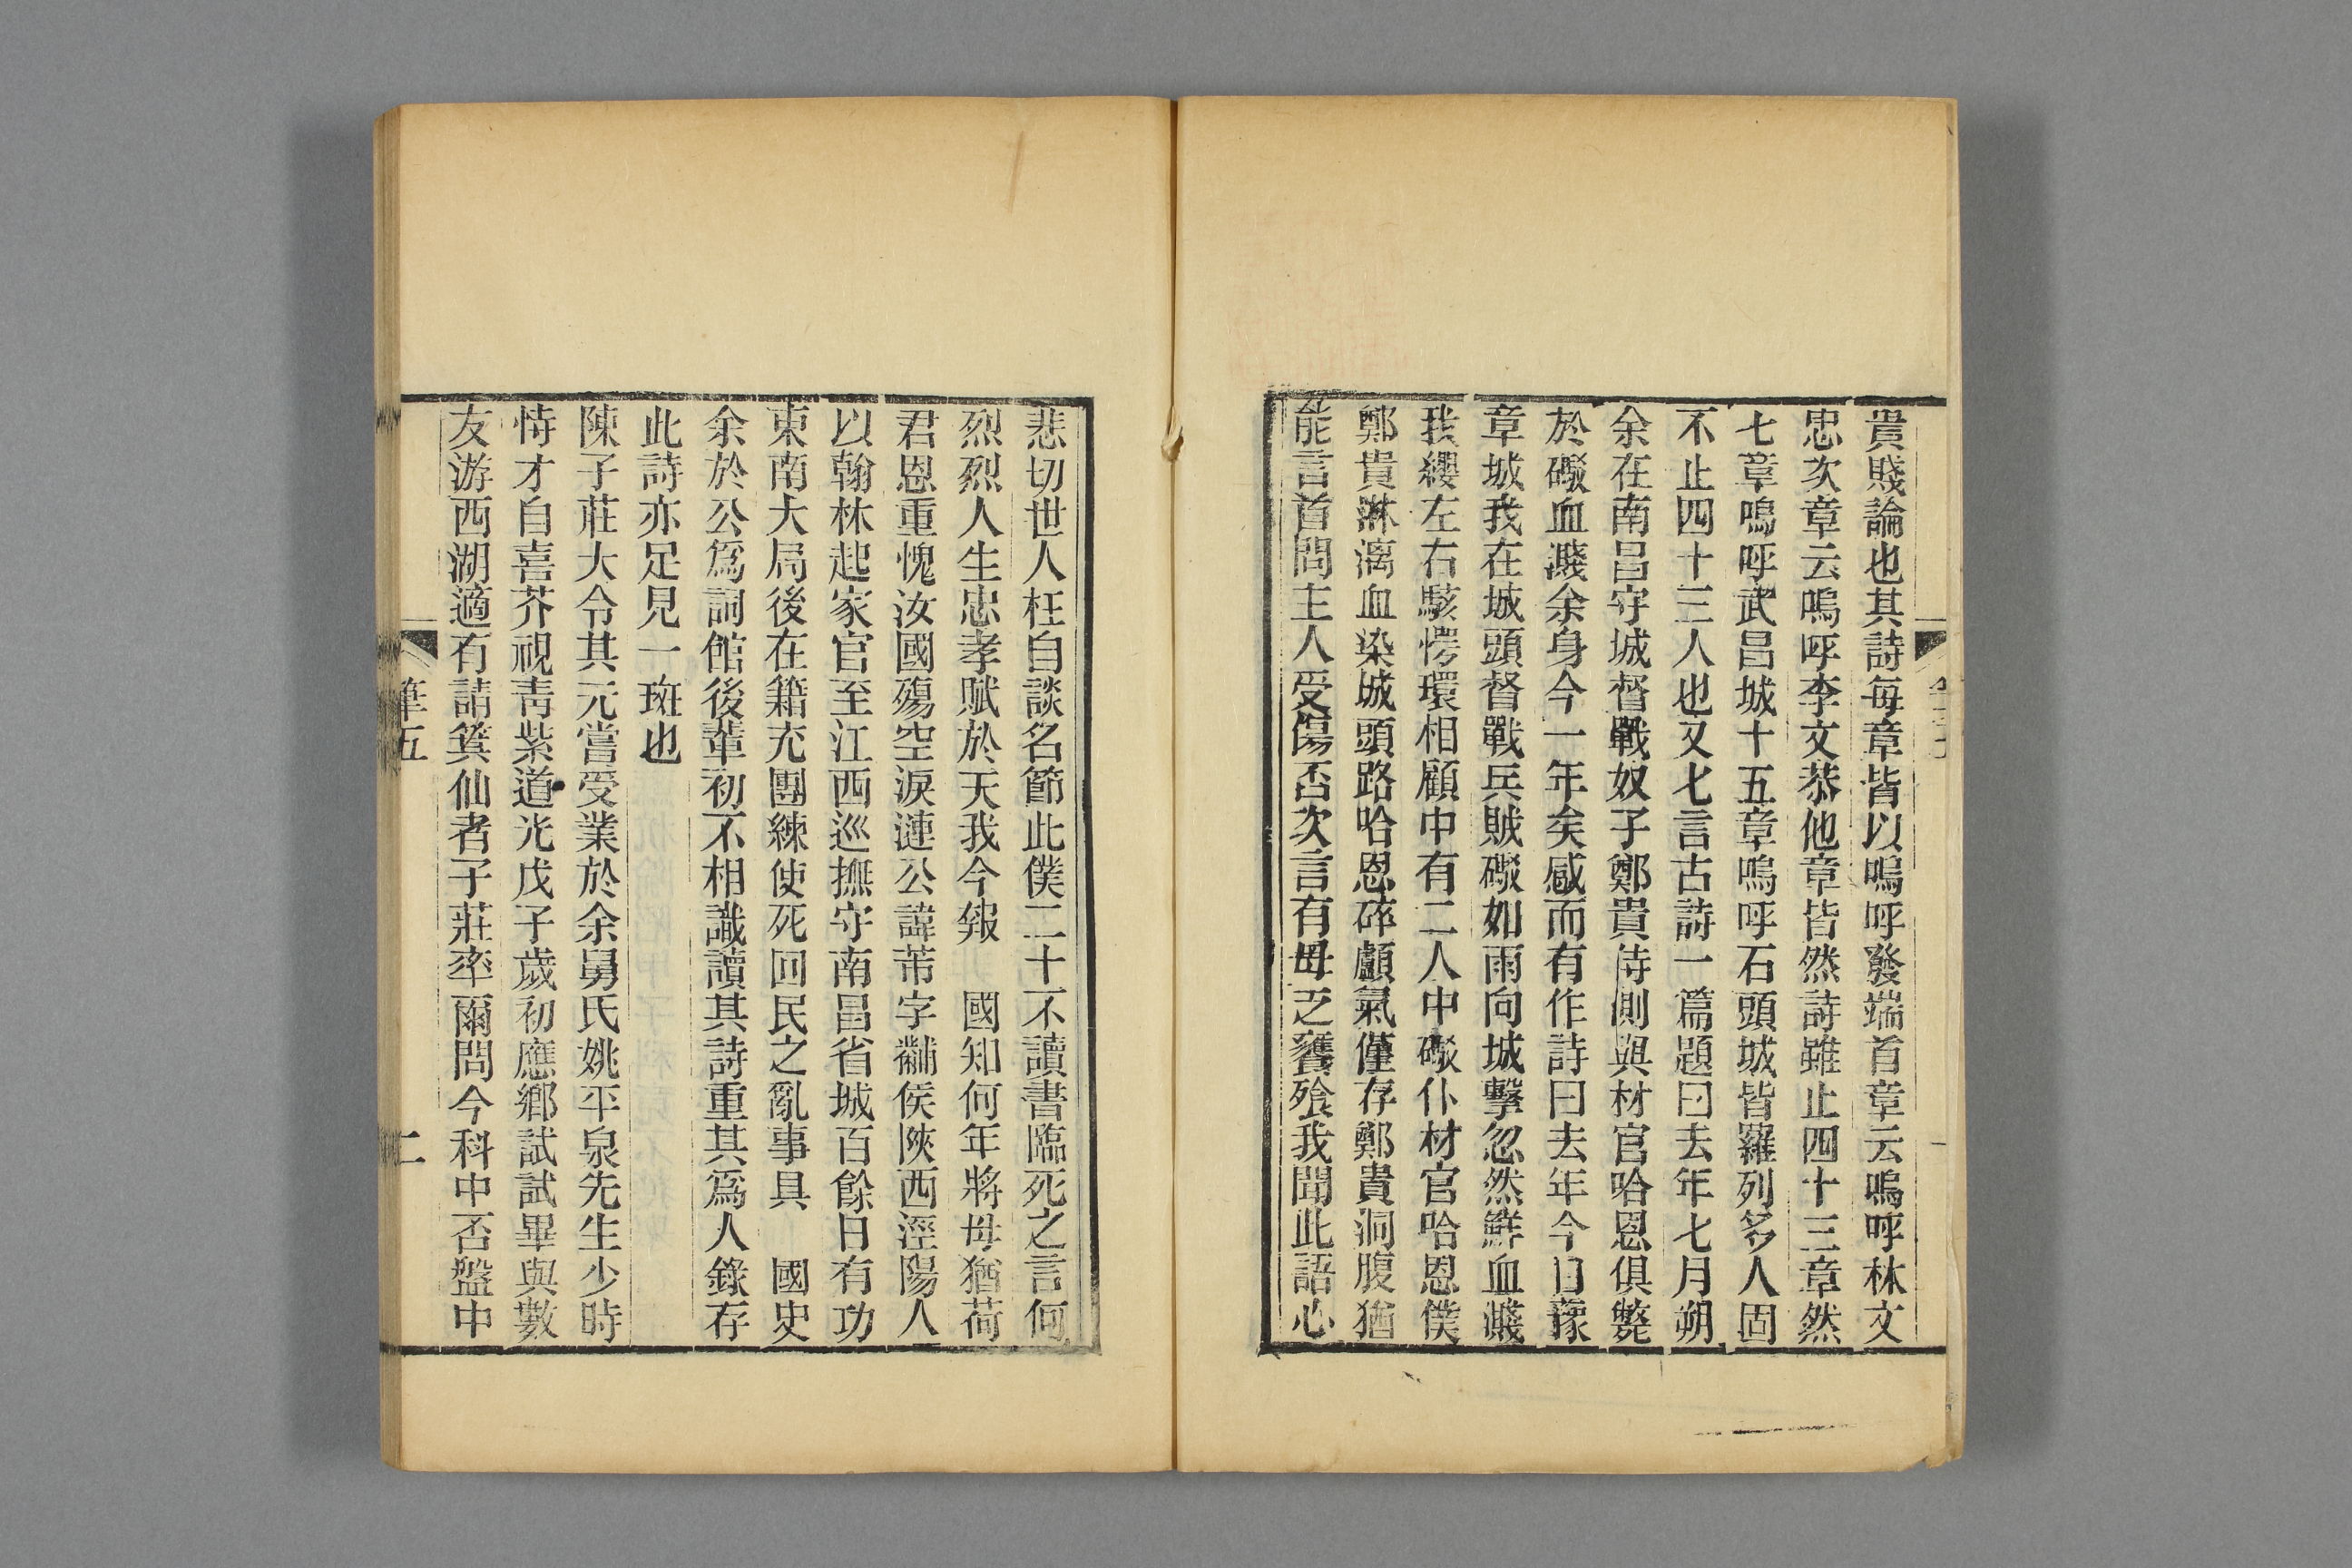 貴賤論也其詩每章皆以嗚呼發端首章云嗚呼林文
忠次章云嗚呼李文恭他章皆然詩雖止四十三章然
七章嗚呼武昌城十五章嗚呼石頭城皆羅列多人固
不止四十三人也又七言古詩一篇題曰去年七月朔
余在南昌守城督戰奴子鄭貴侍側與材官哈恩俱斃
於礮血濺余身今一年矣感而有作詩曰去年今日豫
章城我在城頭督戰兵賊礮如雨向城擊忽然鮮血濺
我纓左右駭愕環相顧中有二人中礮仆材官哈恩僕
鄭貴淋漓血染城頭路哈恩碎顱氣僅存鄭貴洞腹猶
能言首問主人受傷否次言有母乏饔飱我聞此語心
悲切世人枉自談名節此僕二十不讀書臨死之言何
烈烈人生忠孝賦於天我今報　國知何年將母猶荷
君恩重愧汝國殤空淚漣公諱芾字黼侯陝西涇陽人
以翰林起家官至江西巡撫守南昌省城百餘日有功
東南大局後在籍充團練使死回民之亂事具　國史
余於公爲詞館後輩初不相識讀其詩重其爲人錄存
此詩亦足見一斑也
陳子莊大令其元嘗受業於余舅氏姚平泉先生少時
恃才自喜芥視靑紫道光戊子歲初應鄕試試畢與數
友游西湖適有請箕仙者子莊率爾問今科中否盤中
筆五
二